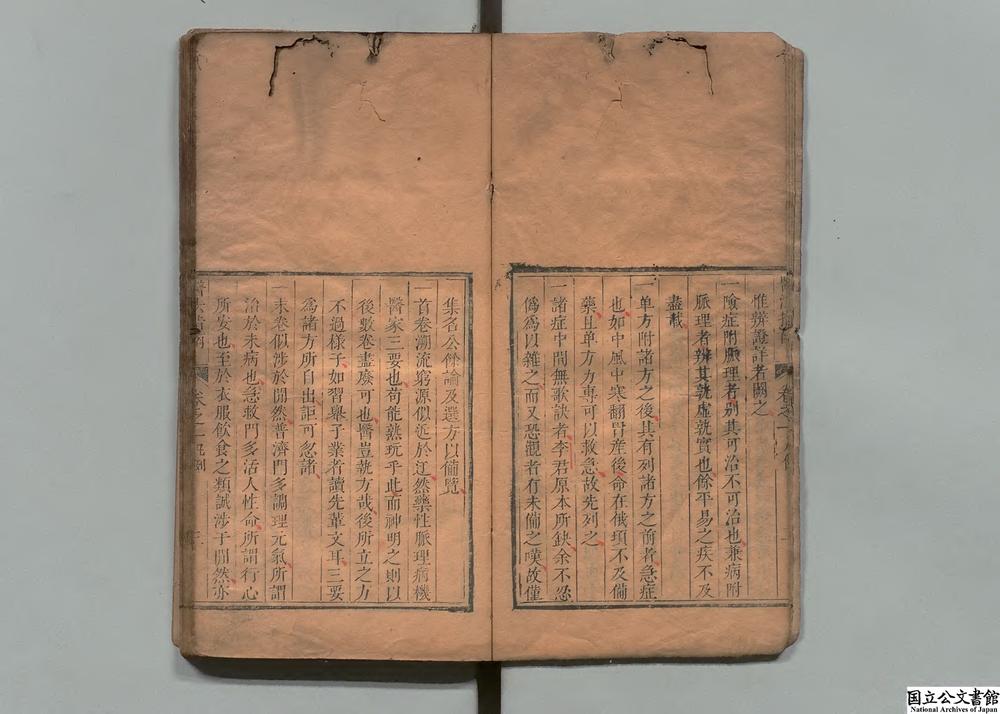 惟辨證詳者闕之
一險症附脈理者別其可治不可治也兼病附
脈理者辨其孰虛孰實也餘平易之疾不及
盡載
一單方附諸方之後其有列諸方之前者急症
也如中風中寒翻胃産後命在俄頃不及備
藥且单方力專可以救急故先列之
一諸症中間無歌訣者李君原本所缺余不忍
僞爲以雜之而又恐觀者有未備之嘆故僅
集名公餘論及選方以備覽
一首卷溯流窮源似近於迂然藥性脈理病機
醫家三要也苟能熟玩乎此而神明之則以
後數卷盡廢可也醫豈執方哉後所立之方
不過樣子如習舉子業者讀先輩文耳三要
為諸方所自出詎可忽諸
一末卷似涉於閒然普濟門多調理元氣所謂
治於未病也急救門多活人性命所謂行心
所安也至於衣服飲食之類誠涉于閒然亦
卷之一 凡例
国立公文書館
National Archives of Japan